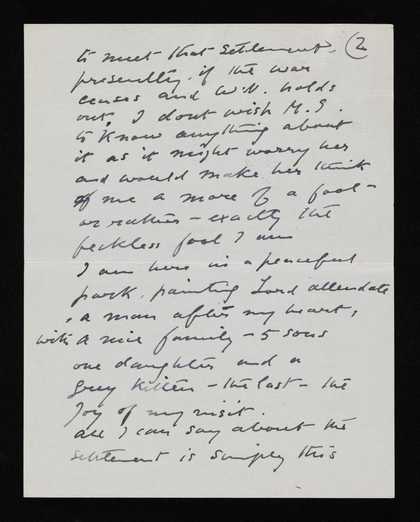 2
to meet that settlement.
presently. if the war
ceases and W.N. holds
out, I dont wish M.G.
to know anything about
it as it might worry her
and would make her think
of me a more of a fool –
or rather – exactly the
feckless fool I am
I am here in a peaceful
park, painting Lord allendale
, a man after my heart,
with a nice family – 5 sons
one daughter and a
grey kitten – the last – the
Joy of my visit.
all I can say about the
settlement is simply this